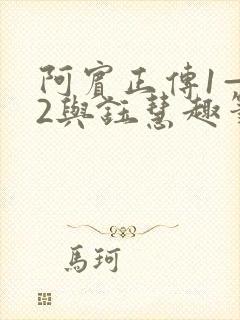 阿賓正傳1—
2與鈺慧趣
馬珂